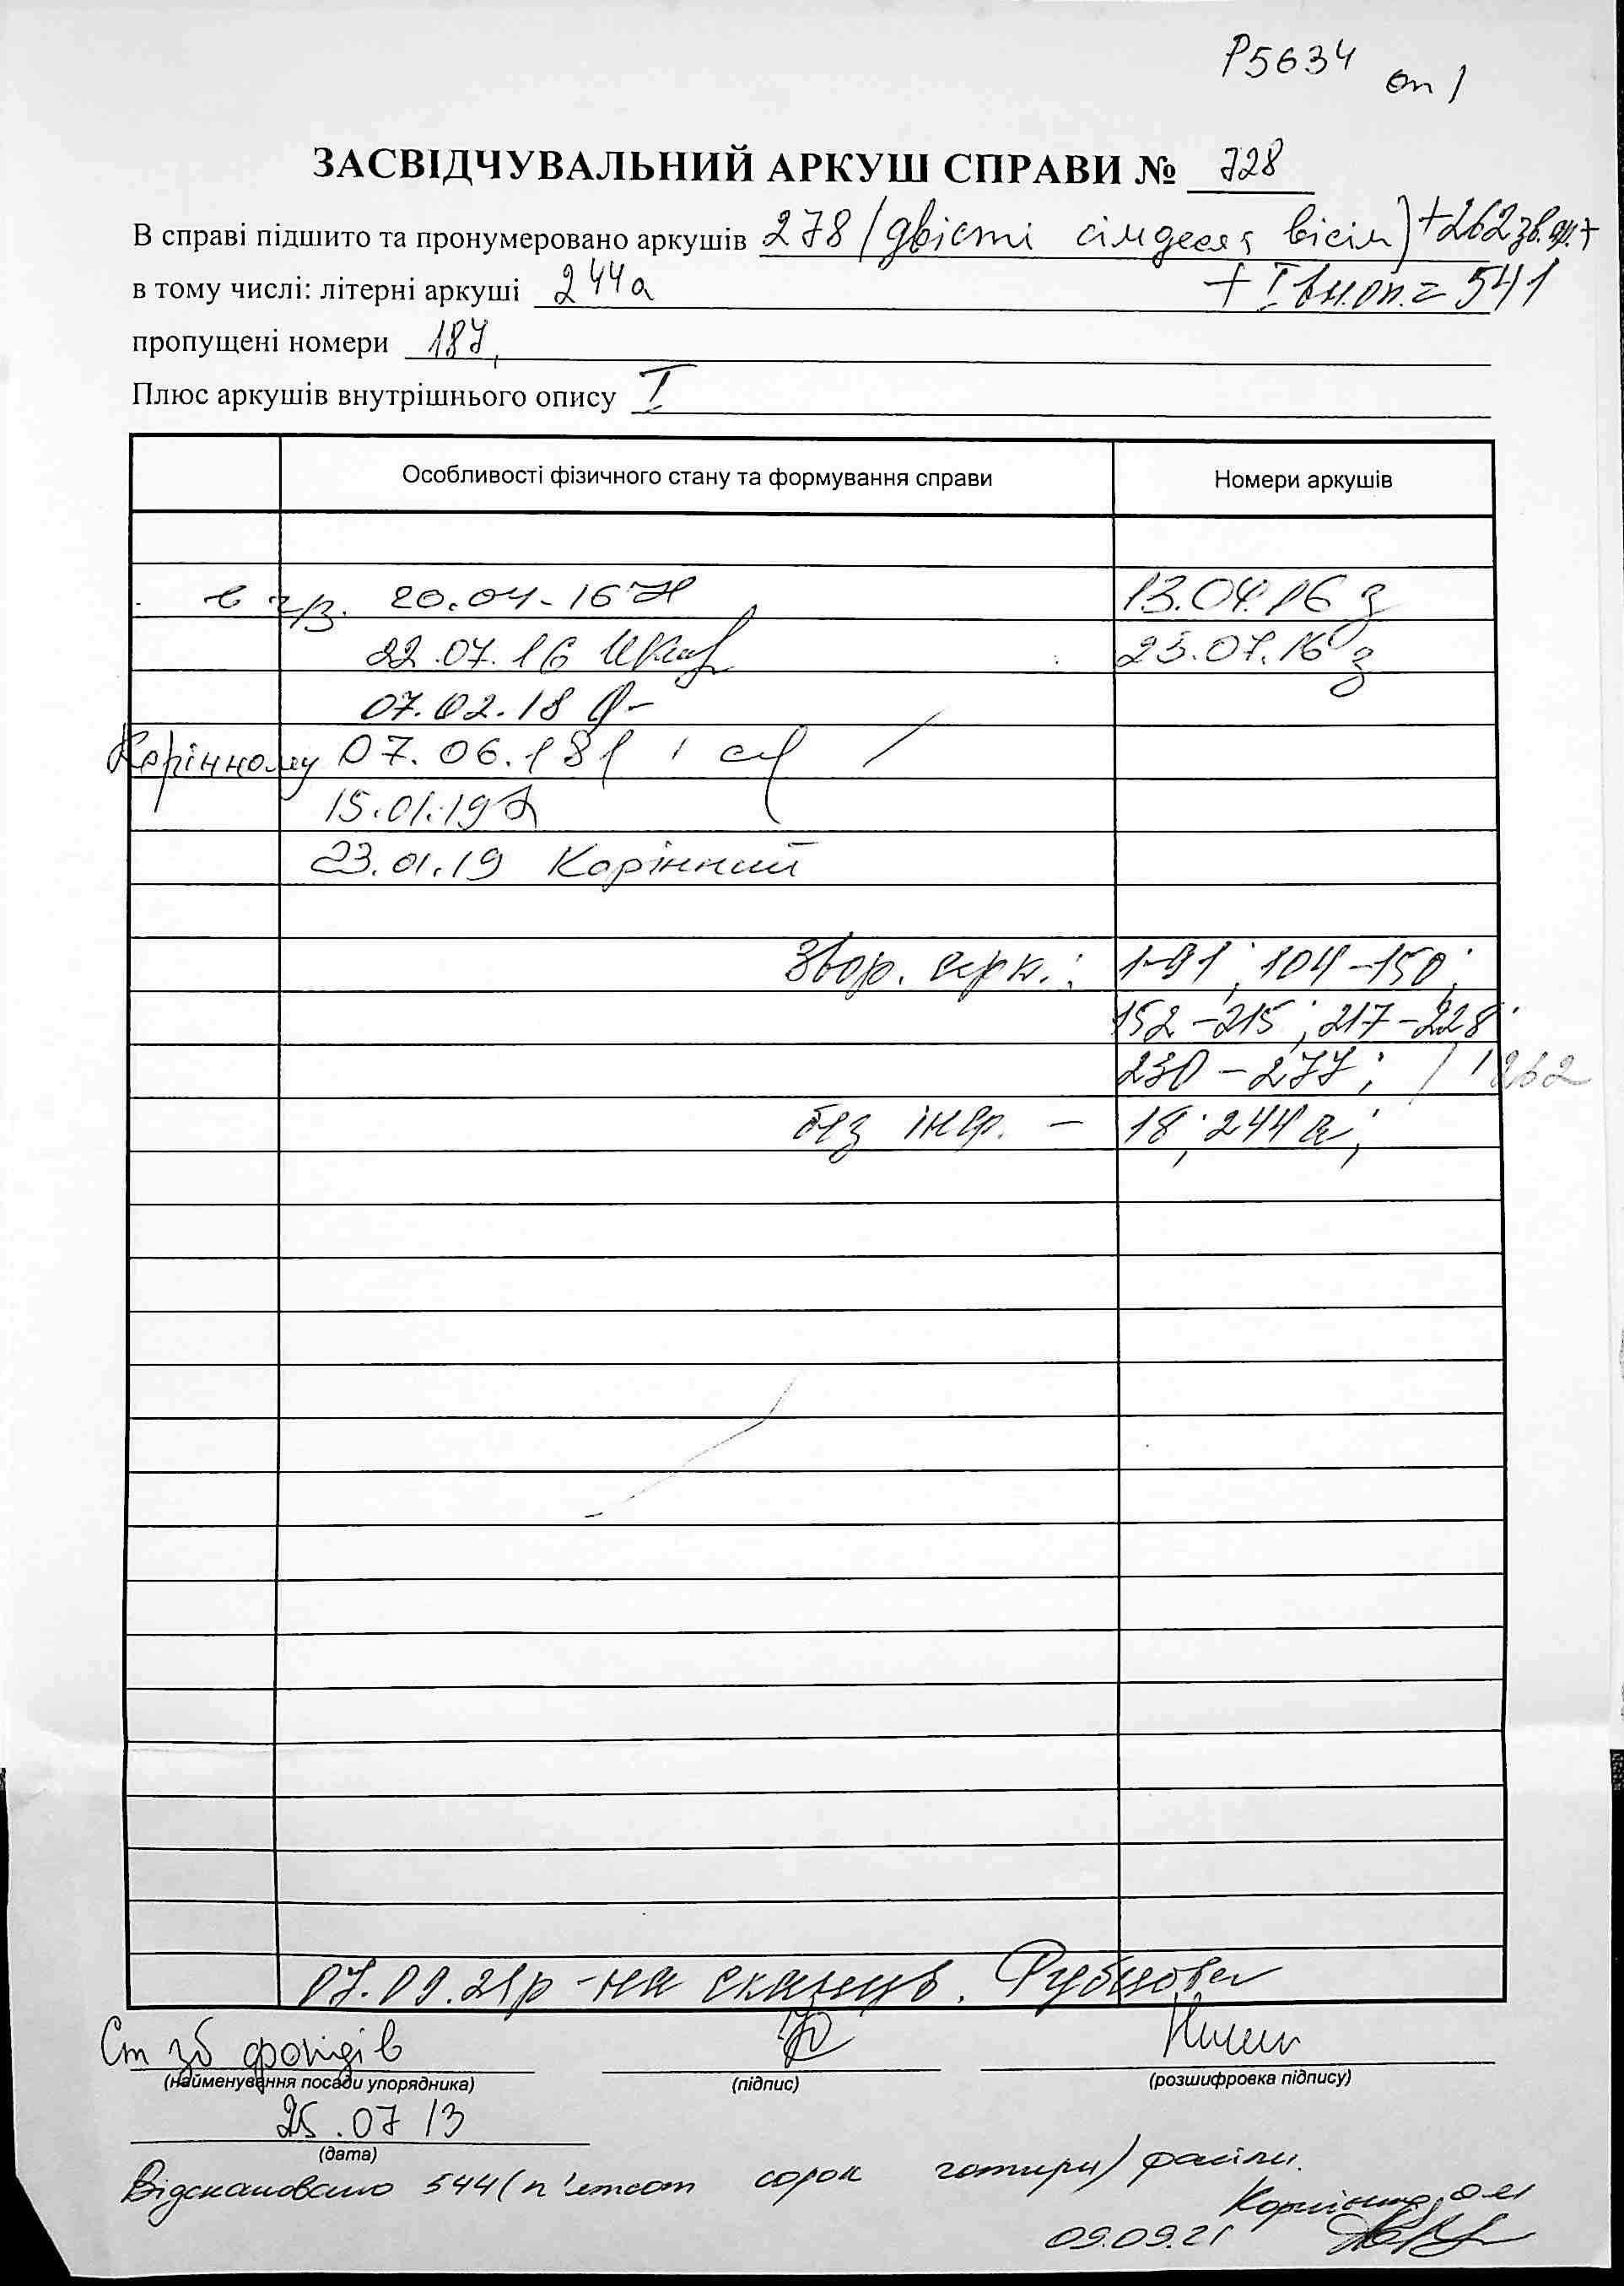 Р5634 оп 1
ЗАСВІДЧУВАЛЬНИЙ АРКУШ СПРАВИ № 728
В справі підшито та пронумеровано аркушів 278 (двісті сімдесят вісім) + 262 зв. ар. +
в тому числі: літерні аркуші 244а + I вн.оп. = 541
пропущені номери 187,
Плюс аркушів внутрішнього опису I
Особливості фізичного стану та формування справи Номери аркушів
в ч/з. 20.04.16 13.04.16 з
22.07.16 25.07.16 з
07.02.18
Корінному 07.06.18
15.01.19
23.01.19 Корінний
Звор. арк.: 1-91; 104-150;
152-215; 217-228;
230-277; 262
без інф. - 18; 244а;
07.09.21р - на сканув. Рубцова
Ст зб фондів
(найменування посади упорядника) (підпис) (розшифровка підпису)
25.07 13
(дата)
Відскановано 544 (п'ятсот сорок чотири) файли.
09.09.21